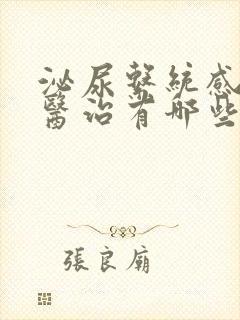 泌尿繫統感
醫治有哪些
張良廟